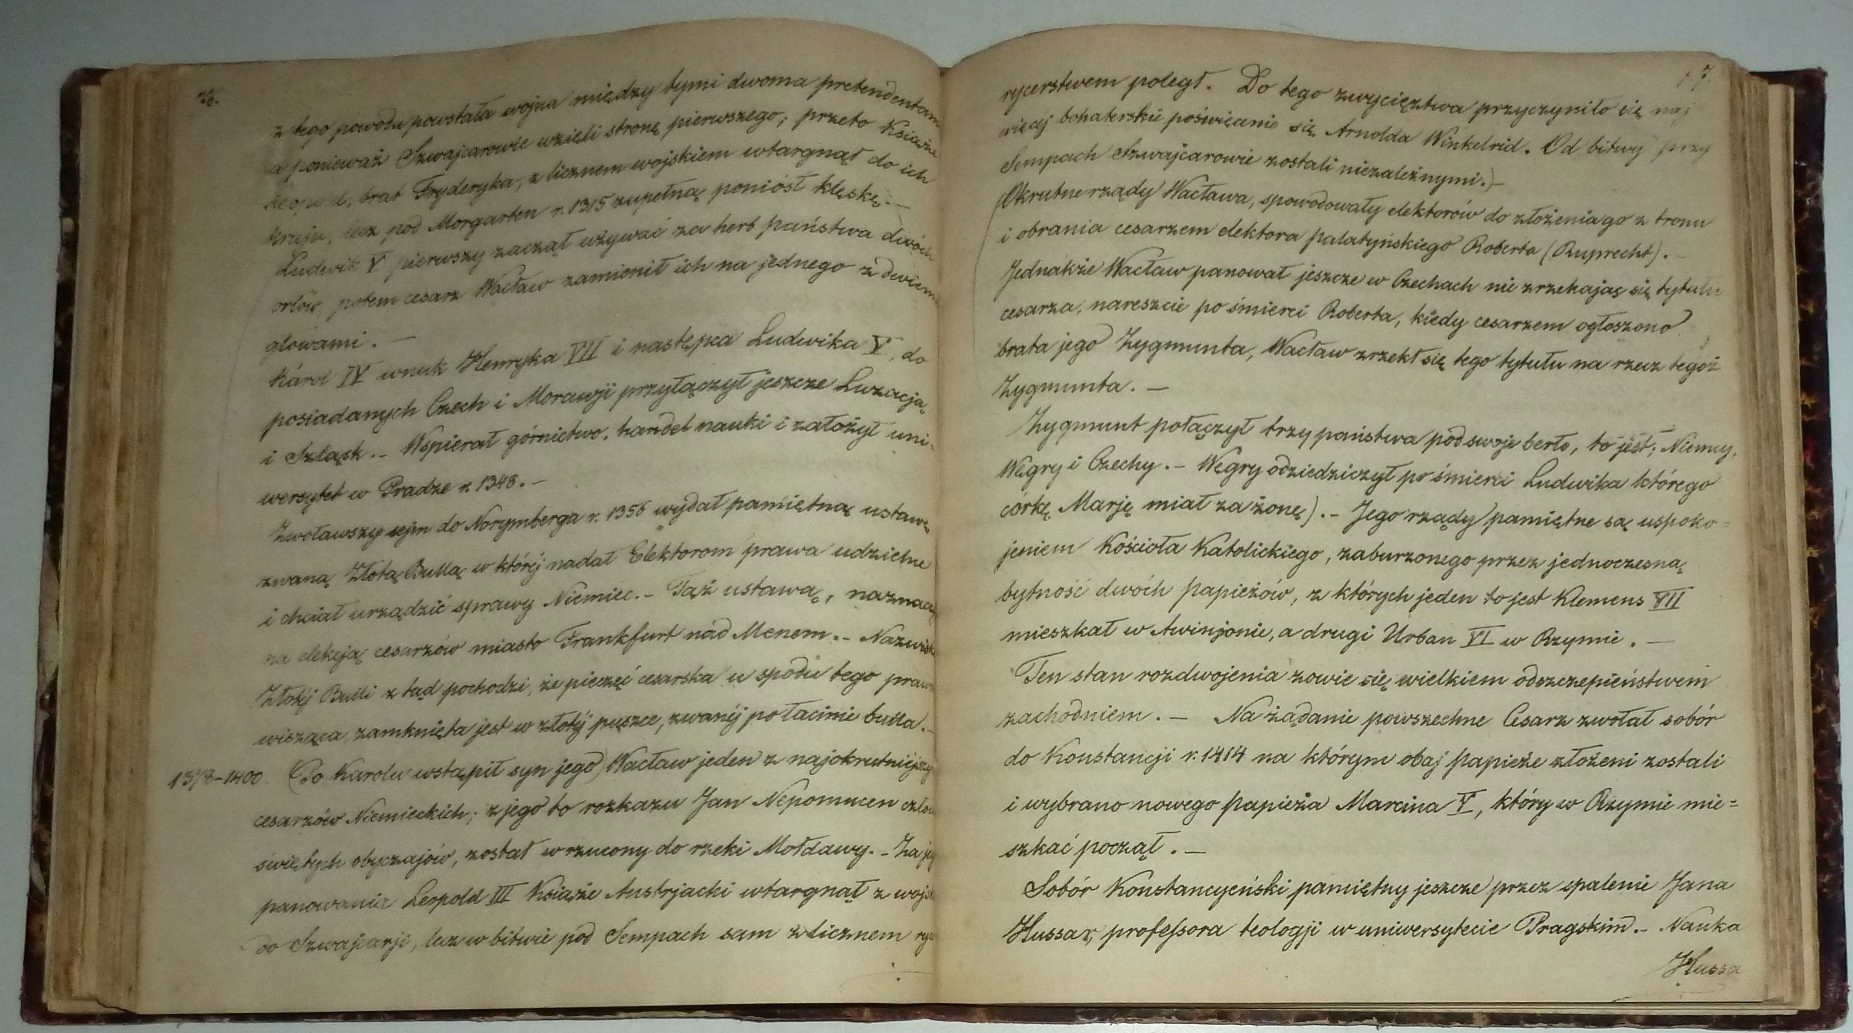 76.
z tego powodu powstała wojna między tymi dwoma pretendentam
a ponieważ Szwajcarowie wzieli stronę pierwszego; przeto Książe
Leopold, brat Fryderyka, z licznem wojskiem wtargnął do ich
kraju, lecz pod Morgarten r. 1315 zupełną poniósł klęskę. —
Ludwik V pierwszy zaczął używać za herb państwa dwóch
orłów, potem cesarz Wacław zamienił ich na jednego z dwiema
głowami. —
Karol IV wnuk Henryka VII i następca Ludwika V, do
posiadanych Czech i Morawji przyłączył jeszcze Luzacją
i Szląsk. – Wspierał górnictwo, handel nauki i założył uni-
wersytet w Pradze r. 1348. –
Zwoławszy sejm do Norymberga r. 1356 wydał pamiętną ustawę
zwaną Złotą Bullą w której nadał Elektorom prawa udzielne
i chciał urządzić sprawy Niemiec. – Tąż ustawą, naznaczą
na elekcją cesarzów miasto Frankfurt nad Menem. – Nazwisko
Złotéj Bulli z tąd pochodzi, że pieczęć cesarska u spodu tego prawa
wisząca, zamknięta jest w złotéj puszce, zwanéj po łacinie bulla. –
1378–1400. (Po Karolu wstąpił syn jego) Wacław jeden z najokrutniejszy
cesarzów Niemieckich; z jego to rozkazu Jan Nepomucen człow
świętych obyczajów, został wrzucony do rzeki Mołdawy. – Za jeg
panowania Leopold III Książe Austrjacki wtargnął z wojsk
do Szwajcarji, lecz w bitwie pod Sempach sam z licznem ryc
77.
rycerstwem poległ. Do tego zwycięztwa przyczyniło się naj
więcej bohaterskie poświęcenie się Arnolda Winkelrid. Od bitwy przy
Sempach Szwajcarowie zostali niezależnymi.) –
(Okrutne rządy Wacława, spowodowały elektorów do złożenia go z tronu
i obrania cesarzem elektora palatyńskiego Roberta (Ruprecht). –
Jednakże Wacław panował jeszcze w Czechach nie zrzekając się tytułu
cesarza, nareszcie po śmierci Roberta, kiedy cesarzem ogłoszono
brata jego Zygmunta, Wacław zrzekł się tego tytułu na rzecz tegoż
Zygmunta. —
Zygmunt połączył trzy państwa pod swoje berło, to jest; Niemcy,
Węgry i Czechy. – Węgry odziedziczył po śmierci Ludwika którego
córkę Marję miał za żonę). – Jego rządy pamiętne są uspoko=
jeniem Kościoła Katolickiego, zaburzonego przez jednoczesną
bytność dwóch papieżów, z których jeden to jest Klemens VII
mieszkał w Awinjonie, a drugi Urban VI w Rzymie. —
Ten stan rozdwojenia zowie się wielkiem odszczepieństwem
zachodniem. — Na żądanie powszechne Cesarz zwołał sobór
do Konstancji r. 1414 na którym obaj papieże złożeni zostali
i wybrano nowego papieża Marcina V, który w Rzymie mie=
szkać począł. —
Sobór Konstancyeński pamiętny jeszcze przez spalenie Jana
Hussa, professora teologji w uniwersytecie Pragskim. – Nauka
Hussa